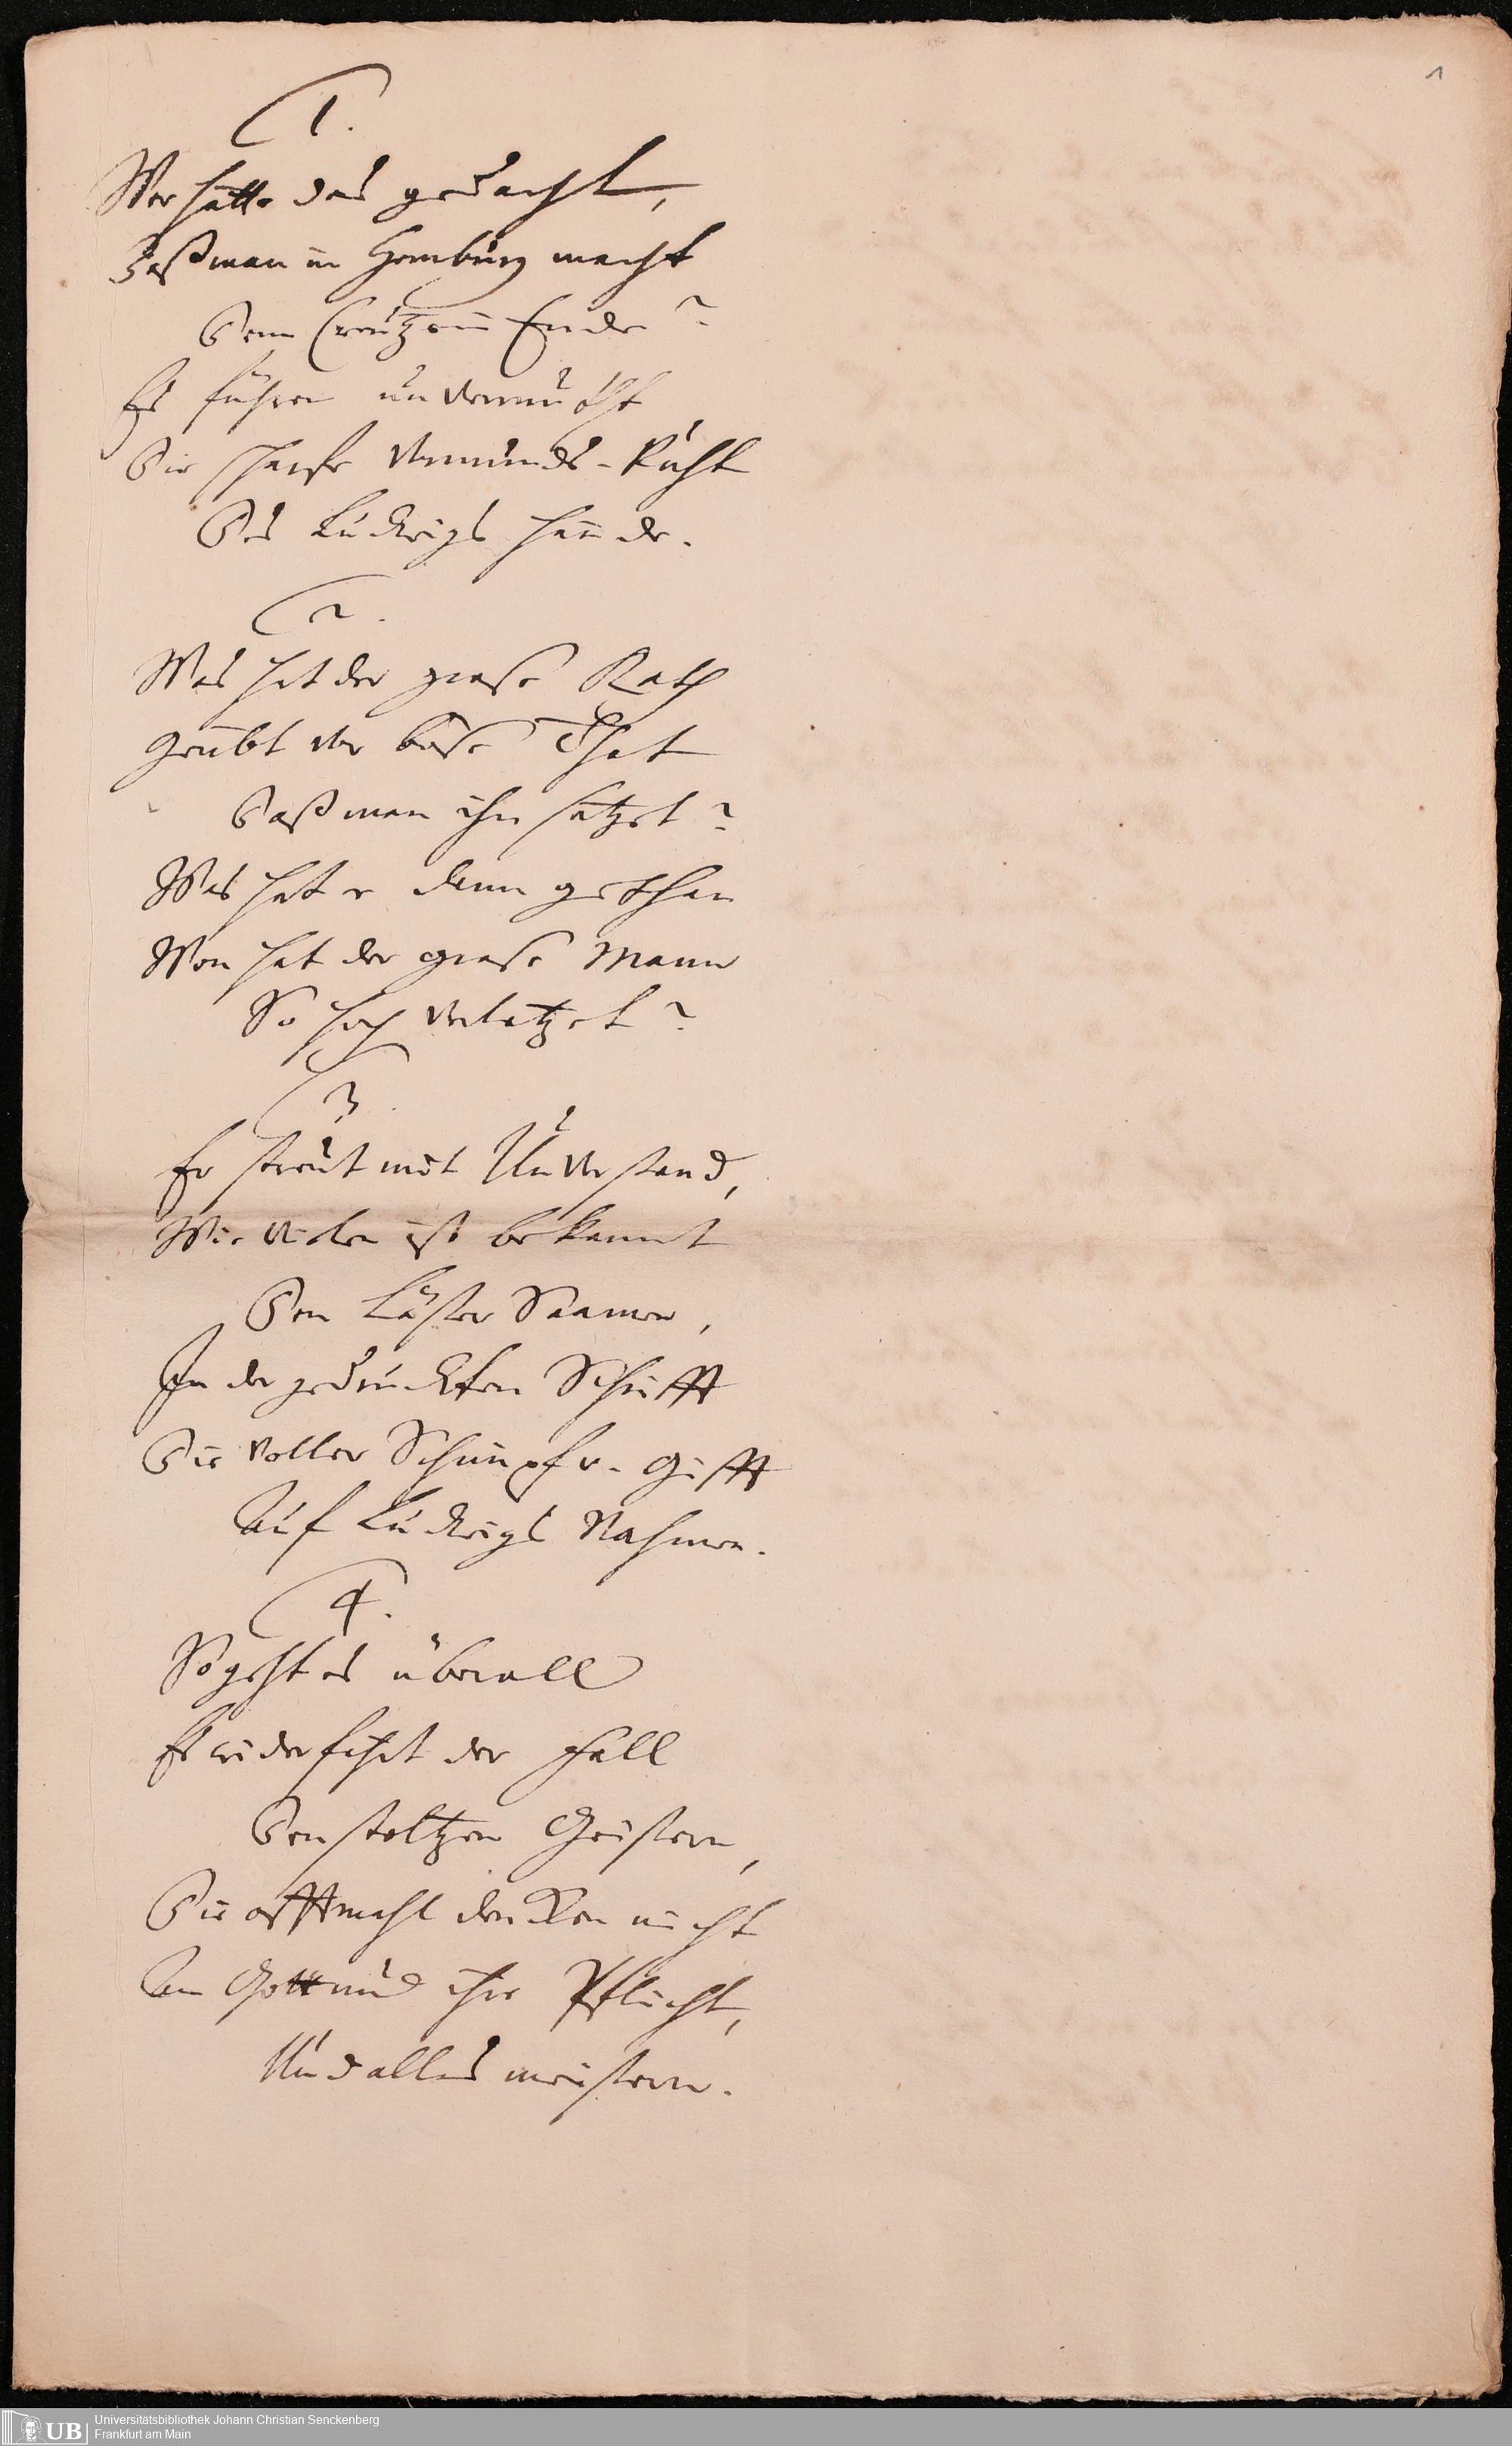 1
1.
Wer hätte das gedacht,
Daß man in Homburg macht
Dem Creutz ein Ende?
Es führen unvermucht
Die scharfe Vormunds-Zucht
Des Ludwigs Hände.
2.
Was hat der große Rath
Geübt vor böse That
Daß man ihn setzet?
Was hat er denn gethan
Wen hat der große Mann
So hoch verletzet?
3.
Er streut mit Unverstand,
Wie vielen ist bekannt
Den Läster Saamen,
In der gedruckten Schrifft
Die voller Schimpf u. Gifft
Auf Ludwigs Nahmen.
4.
So geht es überall
Es widerfährt der Fall
Den stoltzen Geistern,
Die offtmahl dencken nicht
An Gott und ihre Pflicht,
Und alles meistern.
UB
Universitätsbibliothek Johann Christian Senckenberg
Frankfurt am Main